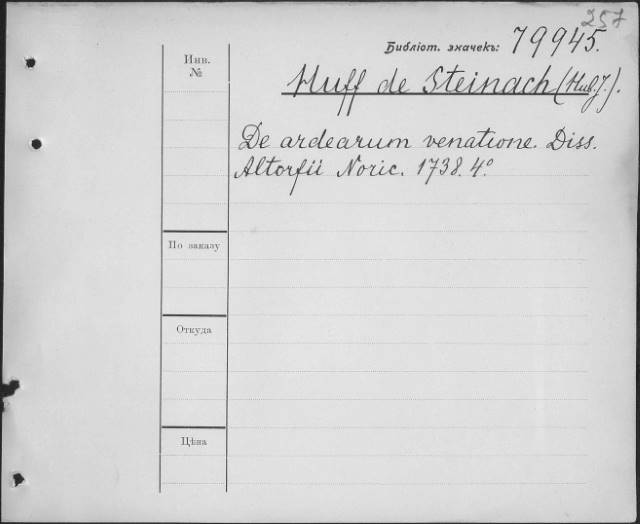 257
Библіот. значекъ: 79945.
Инв.
№
Huff de Steinach (Hub. J.).
De ardearum venatione. Diss.
Altorfii Noric. 1738. 4°
По заказу
Откуда
Цѣна